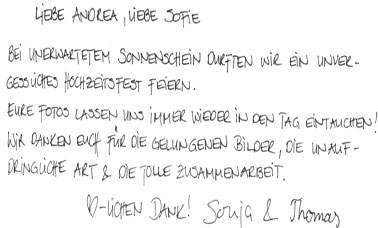 LIEBE ANDREA, LIEBE SOFIE
BEI UNERWARTETEM SONNENSCHEIN DURFTEN WIR EIN UNVER-
GESSLICHES HOCHZEITSFEST FEIERN.
EURE FOTOS LASSEN UNS IMMER WIEDER IN DEN TAG EINTAUCHEN!
WIR DANKEN EUCH FÜR DIE GELUNGENEN BILDER, DIE UNAUF-
DRINGLICHE ART & DIE TOLLE ZUSAMMENARBEIT.
♡-LICHEN DANK! Sonja & Thomas